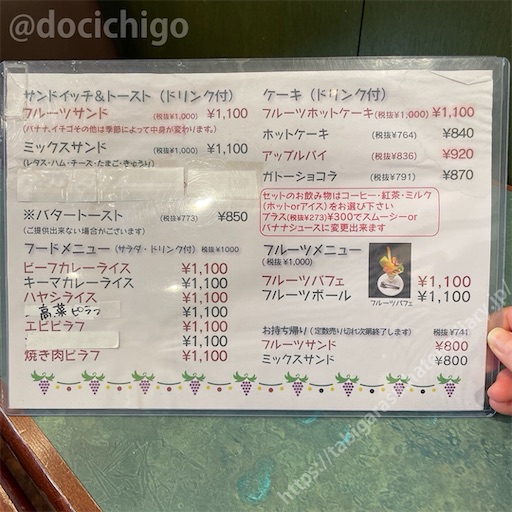 @docichigo
サンドイッチ&トースト (ドリンク付)
フルーツサンド (税抜¥1,000) ¥1,100
(バナナ、イチゴその他は季節によって中身が変わります。)
ミックスサンド (税抜¥1,000) ¥1,100
(レタス・ハム・チーズ・たまご・きゅうり)
※バタートースト (税抜¥773) ¥850
(ご提供出来ない場合がございます)
フードメニュー (サラダ・ドリンク付) 税抜¥1000
ビーフカレーライス ¥1,100
キーマカレーライス ¥1,100
ハヤシライス ¥1,100
高菜ピラフ ¥1,100
エビピラフ ¥1,100
¥1,100
焼き肉ピラフ ¥1,100
ケーキ (ドリンク付)
フルーツホットケーキ (税抜¥1,000) ¥1,100
ホットケーキ (税抜¥764) ¥840
アップルパイ (税抜¥836) ¥920
ガトーショコラ (税抜¥791) ¥870
セットのお飲み物はコーヒー・紅茶・ミルク
(ホットorアイス) をお選び下さい
プラス(税抜¥273)¥300でスムージーor
バナナジュースに変更出来ます
フルーツメニュー
(税抜¥1,000)
フルーツパフェ ¥1,100
フルーツボール ¥1,100
フルーツパフェ
お持ち帰り (定数売り切れ次第終了します) 税抜¥741
フルーツサンド ¥800
ミックスサンド ¥800